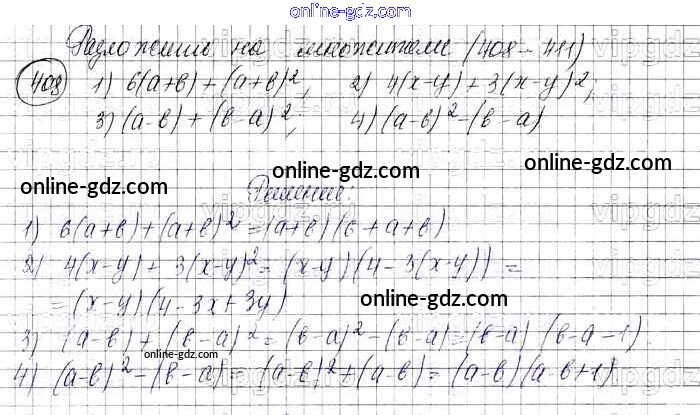 online-gdz.com
Разложить на множители (408-411)
408 1) 6(a+b)+(a+b)², 2) 4(x-y)+3(x-y)²;
3) (a-b)+(b-a)²; 4) (a-b)²-(b-a)
online-gdz.com
online-gdz.com
online-gdz.com
Решение:
1) 6(a+b)+(a+b)²=(a+b)(6+a+b)
2) 4(x-y)+3(x-y)²=(x-y)(4-3(x-y))=
=(x-y)(4-3x+3y)
online-gdz.com
3) (a-b)+(b-a)²=(b-a)²-(b-a)=(b-a)(b-a-1)
online-gdz.com
4) (a-b)²-(b-a)=(a-b)²+(a-b)=(a-b)(a-b+1)
online-gdz.com